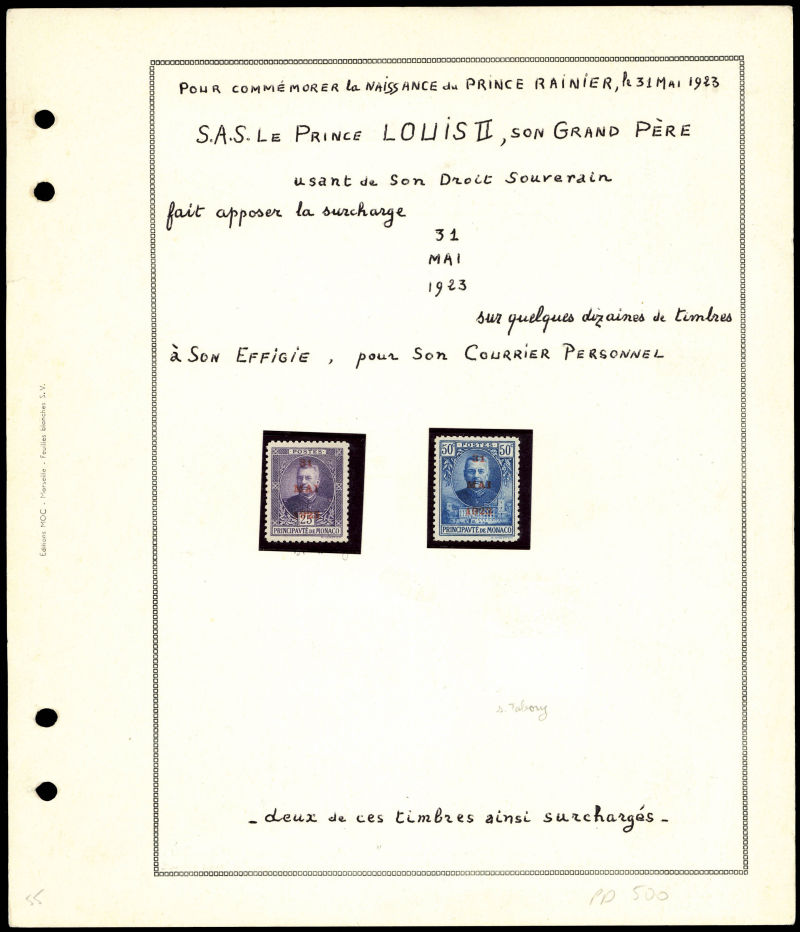 POUR COMMÉMORER la NAISSANCE du PRINCE RAINIER, le 31 MAI 1923
S.A.S. LE PRINCE LOUIS II, SON GRAND PÈRE
usant de Son Droit Souverain
fait apposer la surcharge
31
MAI
1923
sur quelques dizaines de timbres
à SON EFFIGIE, pour Son COURRIER PERSONNEL
POSTES
31
MAI
25
PRINCIPAVTÉ DE MONACO
50 POSTES 50
31
MAI
1923
PRINCIPAVTÉ DE MONACO
Editions MOC - Marseille - Feuilles blanches S.V.
- deux de ces timbres ainsi surchargés -
55
PD 500